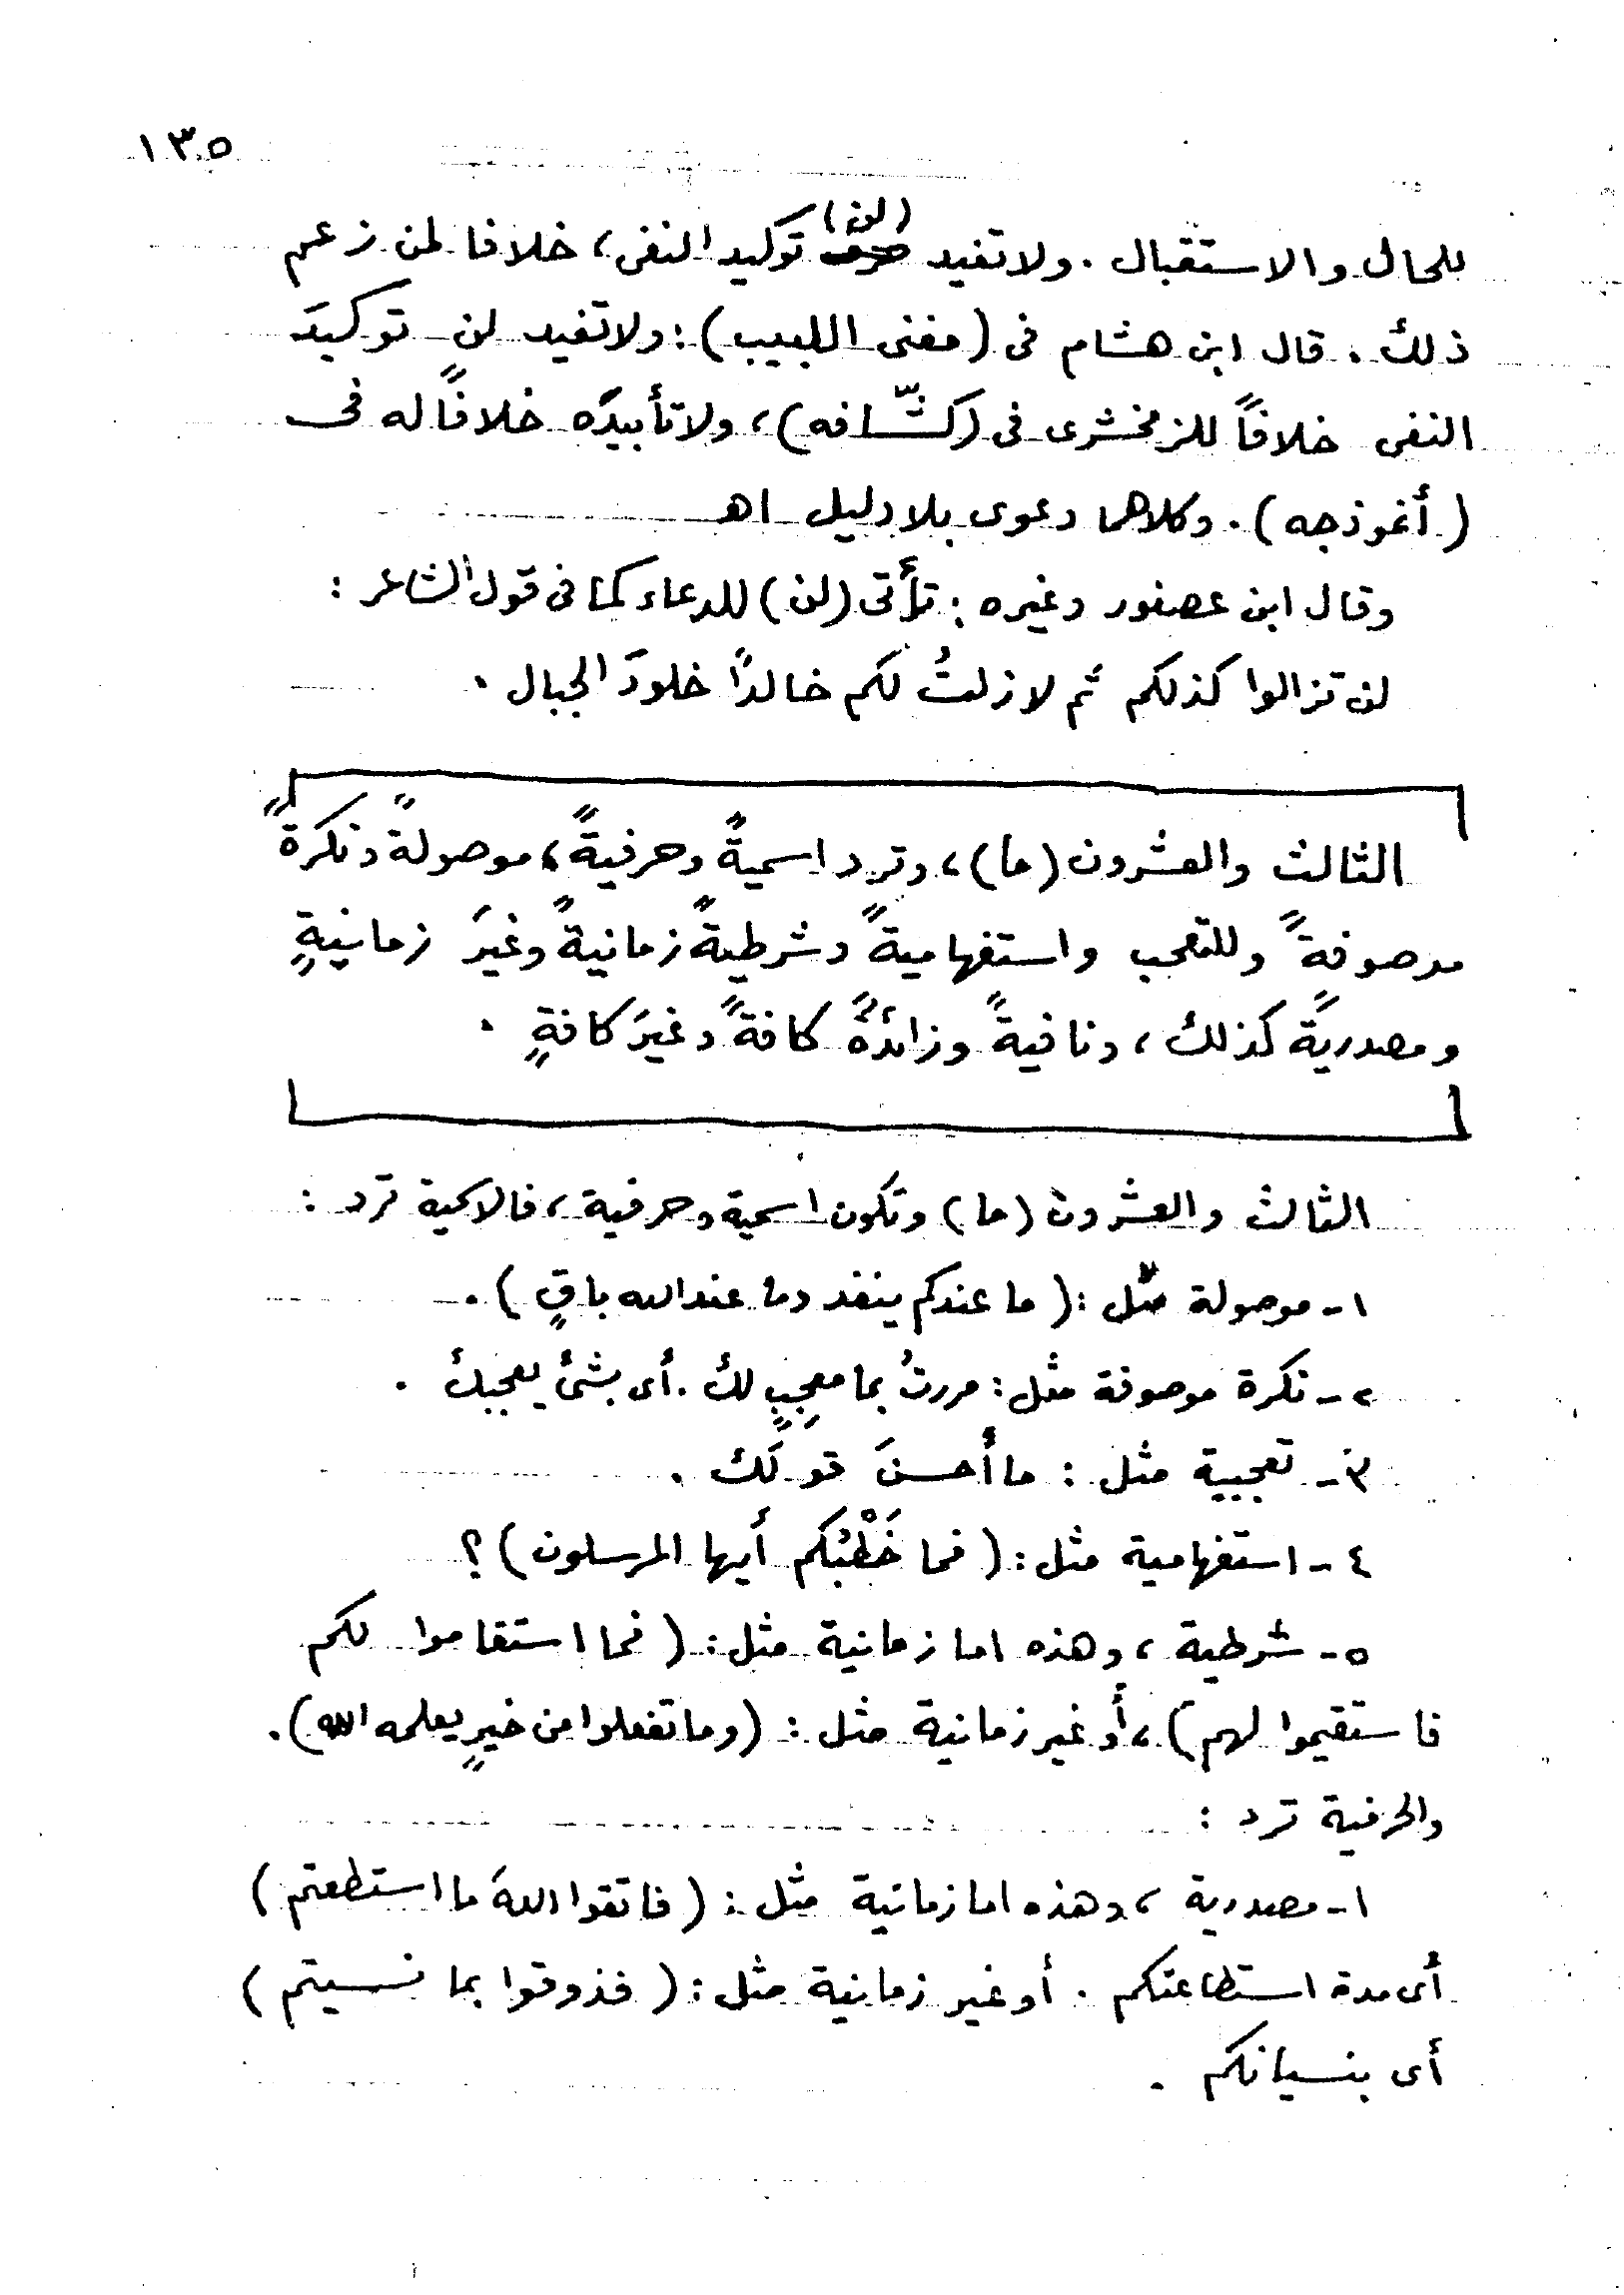 ١٣٥
للحال والاستقبال . ولا تفيد (لن) توكيد النفى، خلافا لمن زعم
ذلك . قال ابن هشام فى (مغنى اللبيب) : ولا تفيد لن توكيدَ
النفى خلافاً للزمخشرى فى (كشّافه)، ولا تأبيدَه خلافًا له فى
(أنموذجه) . وكلاهما دعوى بلا دليل اهـ
وقال ابن عصفور وغيره : تأتى (لن) للدعاء كما فى قول الشاعر :
لن تزالوا كذلكم ثم لا زلتُ لكم خالدًا خلودَ الجبال .
الثالث والعشرون (ما)، وترد اسميةً وحرفيةً، موصولةً ونكرةً
موصوفةً وللتعجب واستفهاميةً وشرطيةً زمانيةً وغيرَ زمانيةٍ
ومصدريةً كذلك، ونافيةً وزائدةً كافةً وغيرَ كافةٍ .
الثالث والعشرون (ما) وتكون اسمية وحرفية، فالاسمية ترد :
١- موصولة مثل : (ما عندكم ينفد وما عند الله باقٍ) .
٢- نكرة موصوفة مثل : مررتُ بما معجِبٍ لك . أى بشئ يعجبك .
٣- تعجبية مثل : ما أحسنَ قولَك .
٤- استفهامية مثل : (فما خَطْبُكم أيها المرسلون) ؟
٥- شرطية، وهذه اما زمانية مثل : (فما استقاموا لكم
فاستقيموا لهم)، أو غير زمانية مثل : (وما تفعلوا من خيرٍ يعلمه الله) .
والحرفية ترد :
١- مصدرية، وهذه اما زمانية مثل : (فاتقوا اللهَ ما استطعتم)
أى مدة استطاعتكم . أو غير زمانية مثل : (فذوقوا بما نسيتم)
أى بنسيانكم .